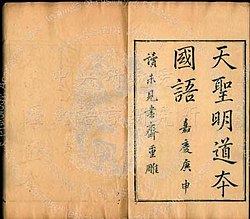 天聖明道本
國語
嘉慶庚申
讀未見書齋重雕